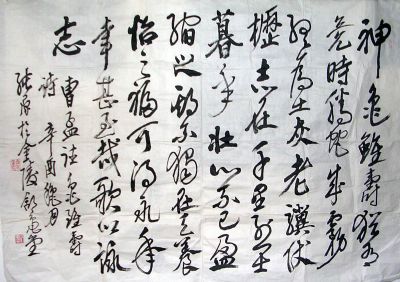 神龜雖壽猶有
竟時騰蛇成霧
終為土灰老驥伏
櫪志在千里烈士
暮年壯心不已盈
縮之期不獨在天養
怡之福可得永年
幸甚至哉歌以詠
志
曹孟德龜雖壽
詩 辛酉 月
於金陵 堂